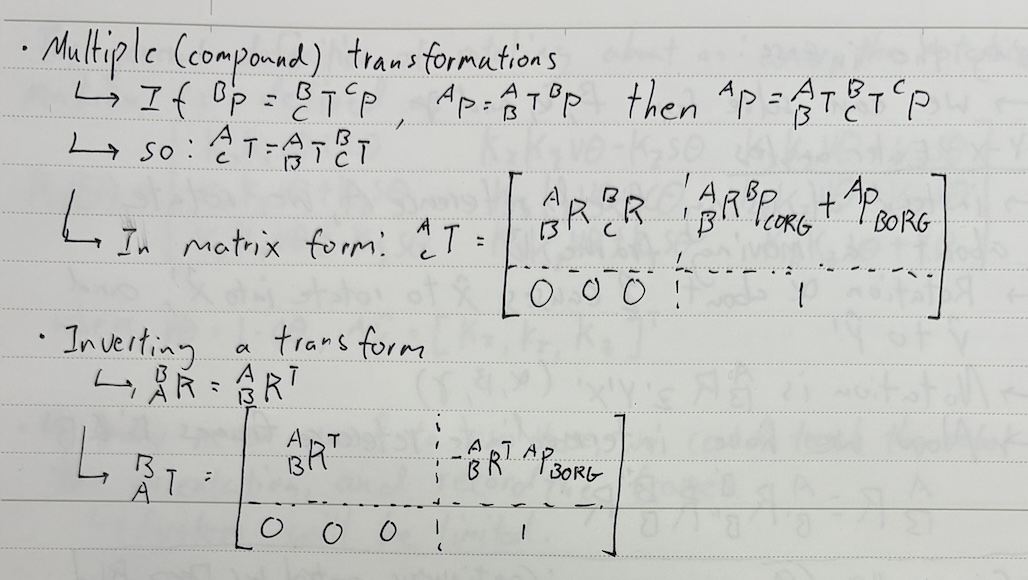 • Multiple (compound) transformations
↳ If ᴮP = ᴮ_C T ᶜP, ᴬP = ᴬ_B T ᴮP then ᴬP = ᴬ_B T ᴮ_C T ᶜP
↳ so: ᴬ_C T = ᴬ_B T ᴮ_C T
↳ In matrix form: ᴬ_C T = [ ᴬ_B R ᴮ_C R ¦ ᴬ_B R ᴮP_CORG + ᴬP_BORG
0 0 0 ¦ 1 ]
• Inverting a transform
↳ ᴮ_A R = ᴬ_B Rᵀ
↳ ᴮ_A T = [ ᴬ_B Rᵀ ¦ -ᴬ_B Rᵀ ᴬP_BORG
0 0 0 ¦ 1 ]